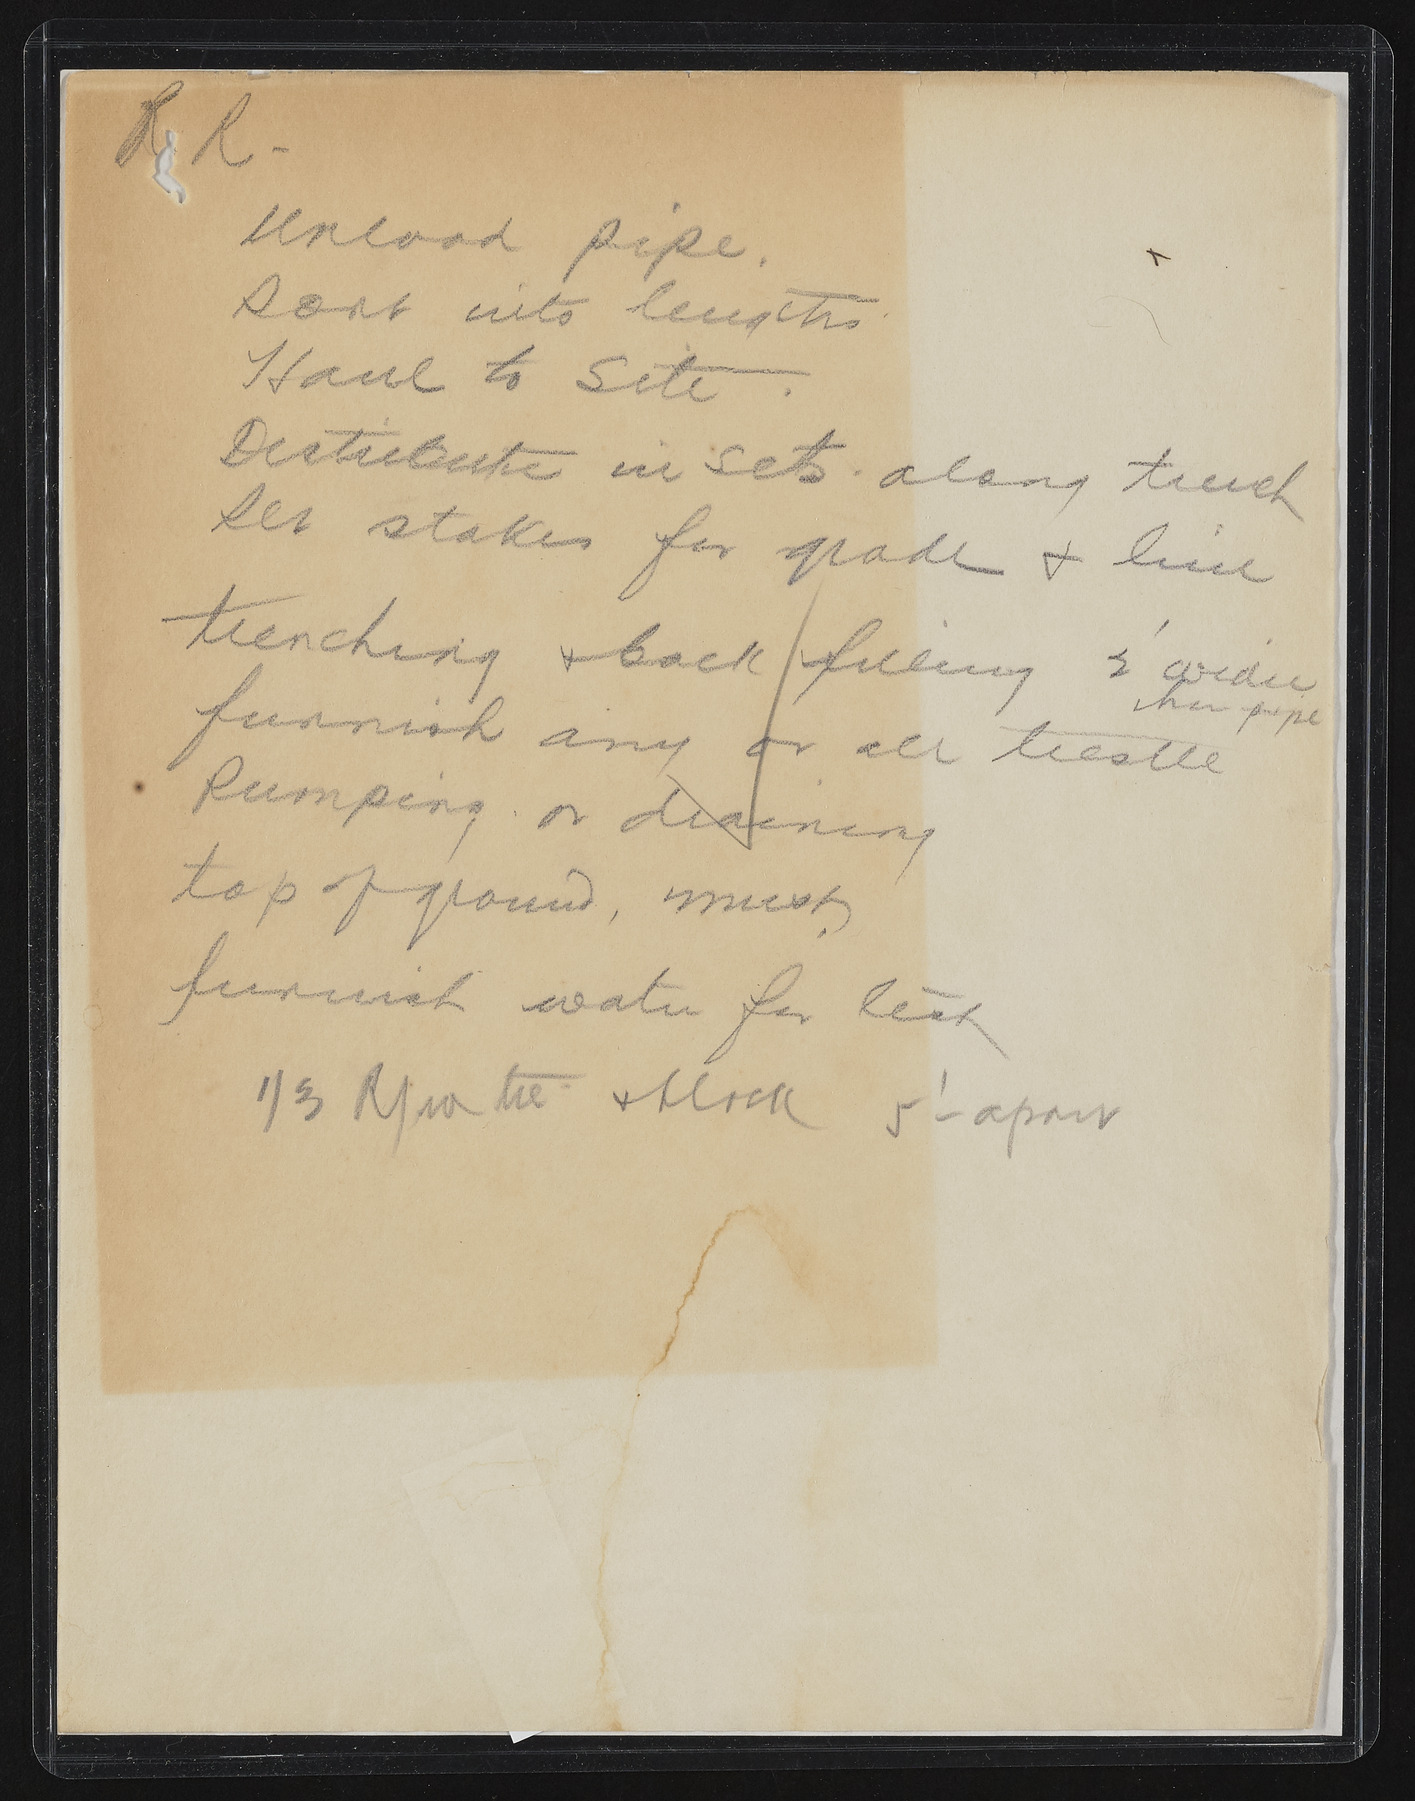 R R -
Unload pipe.
Sort into lengths.
Haul to Site.
Distribute in Sets along trench
Set stakes for grade & line
trenching & back filling 2' wider
than pipe
furnish any or all trestle
Pumping or draining
top of ground, must
furnish water for test
1/3 tie & block 5'- apart